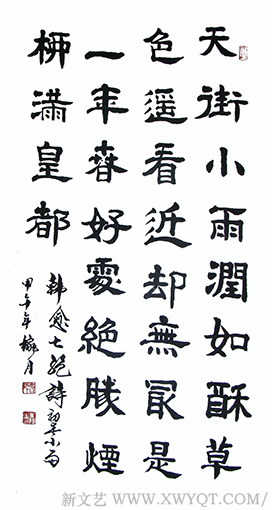 天街小雨潤如酥草
色遥看近却無最是
一年春好處絕勝煙
柳滿皇都
韩愈七绝詩初春小雨
甲午年月
新文艺 / WWW.XWYQT.COM